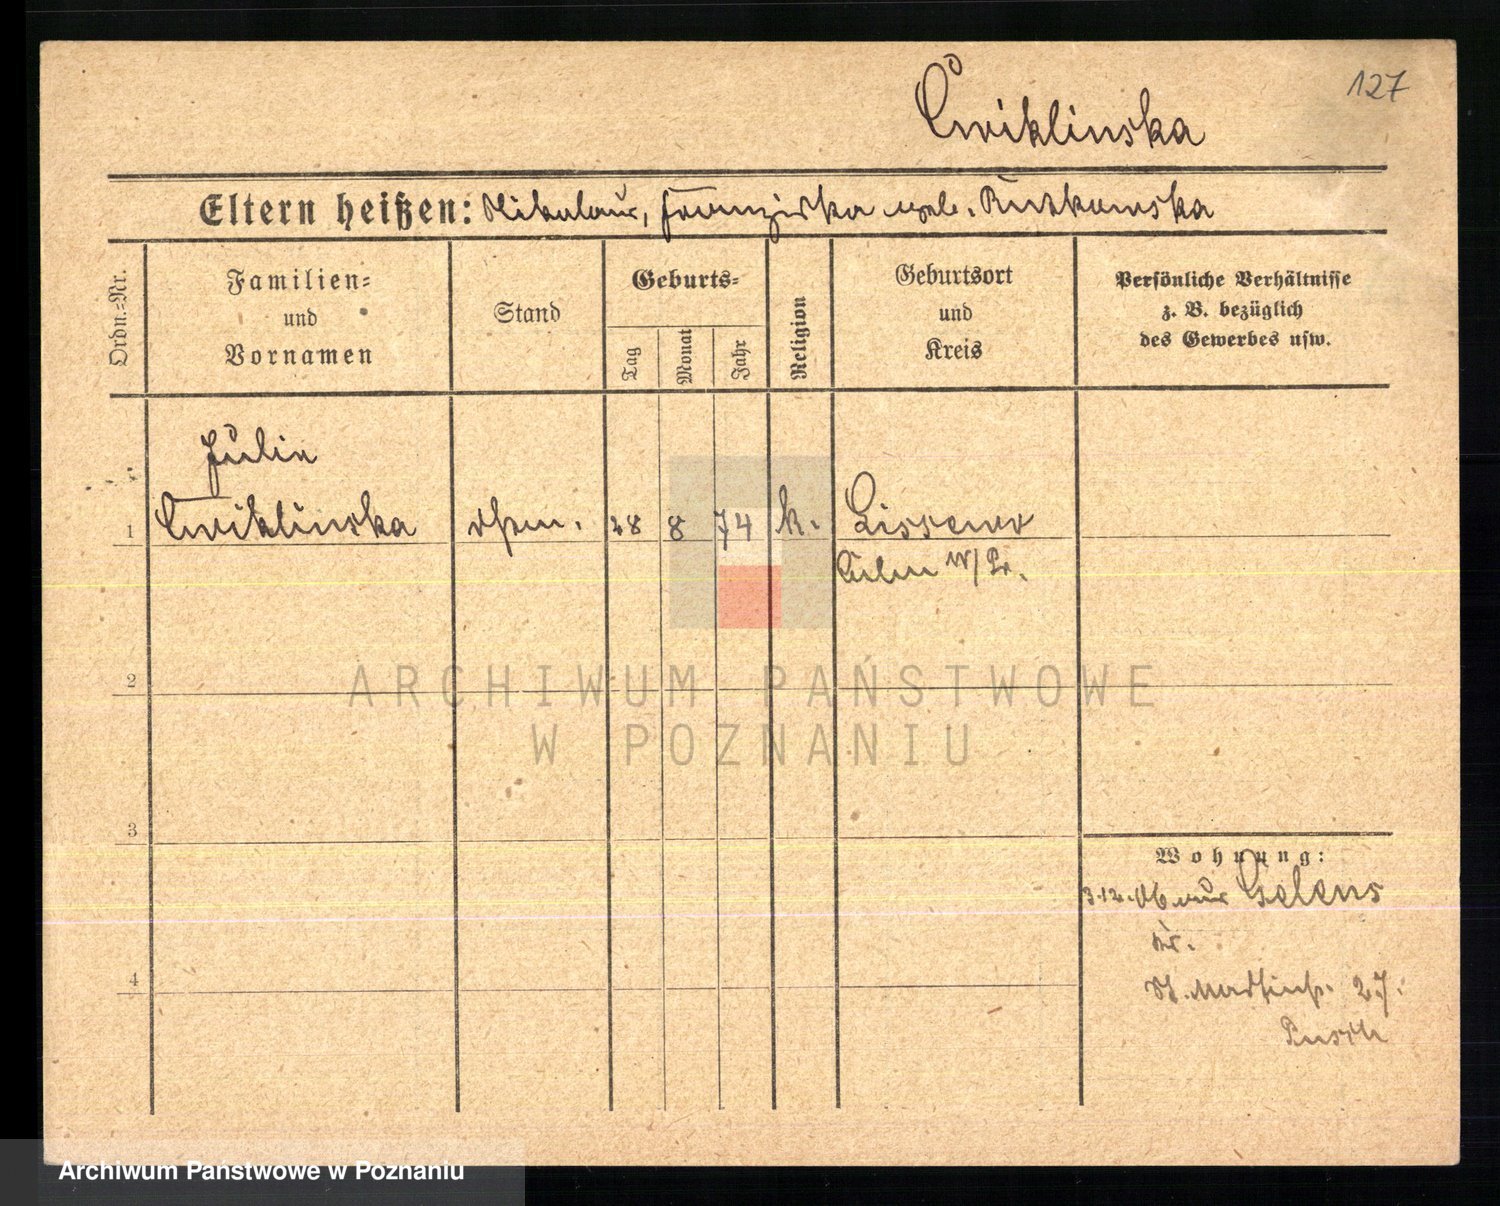 127
Cwiklinska
Eltern heißen: Nikolaus, Franziska geb. Rutkowska
Ordn.-Nr.
Familien-
und
Vornamen
Stand
Geburts-
Tag
Monat
Jahr
Religion
Geburtsort
und
Kreis
Persönliche Verhältnisse
z. B. bezüglich
des Gewerbes usw.
Julie
1 Cwiklinska 28 8 74 k. Lissewo
Culm W/Pr.
2
3
4
Wohnung:
3.12.06 aus Gelens
Kr.
St. Martinstr. 27.
ARCHIWUM PAŃSTWOWE
W POZNANIU
Archiwum Państwowe w Poznaniu